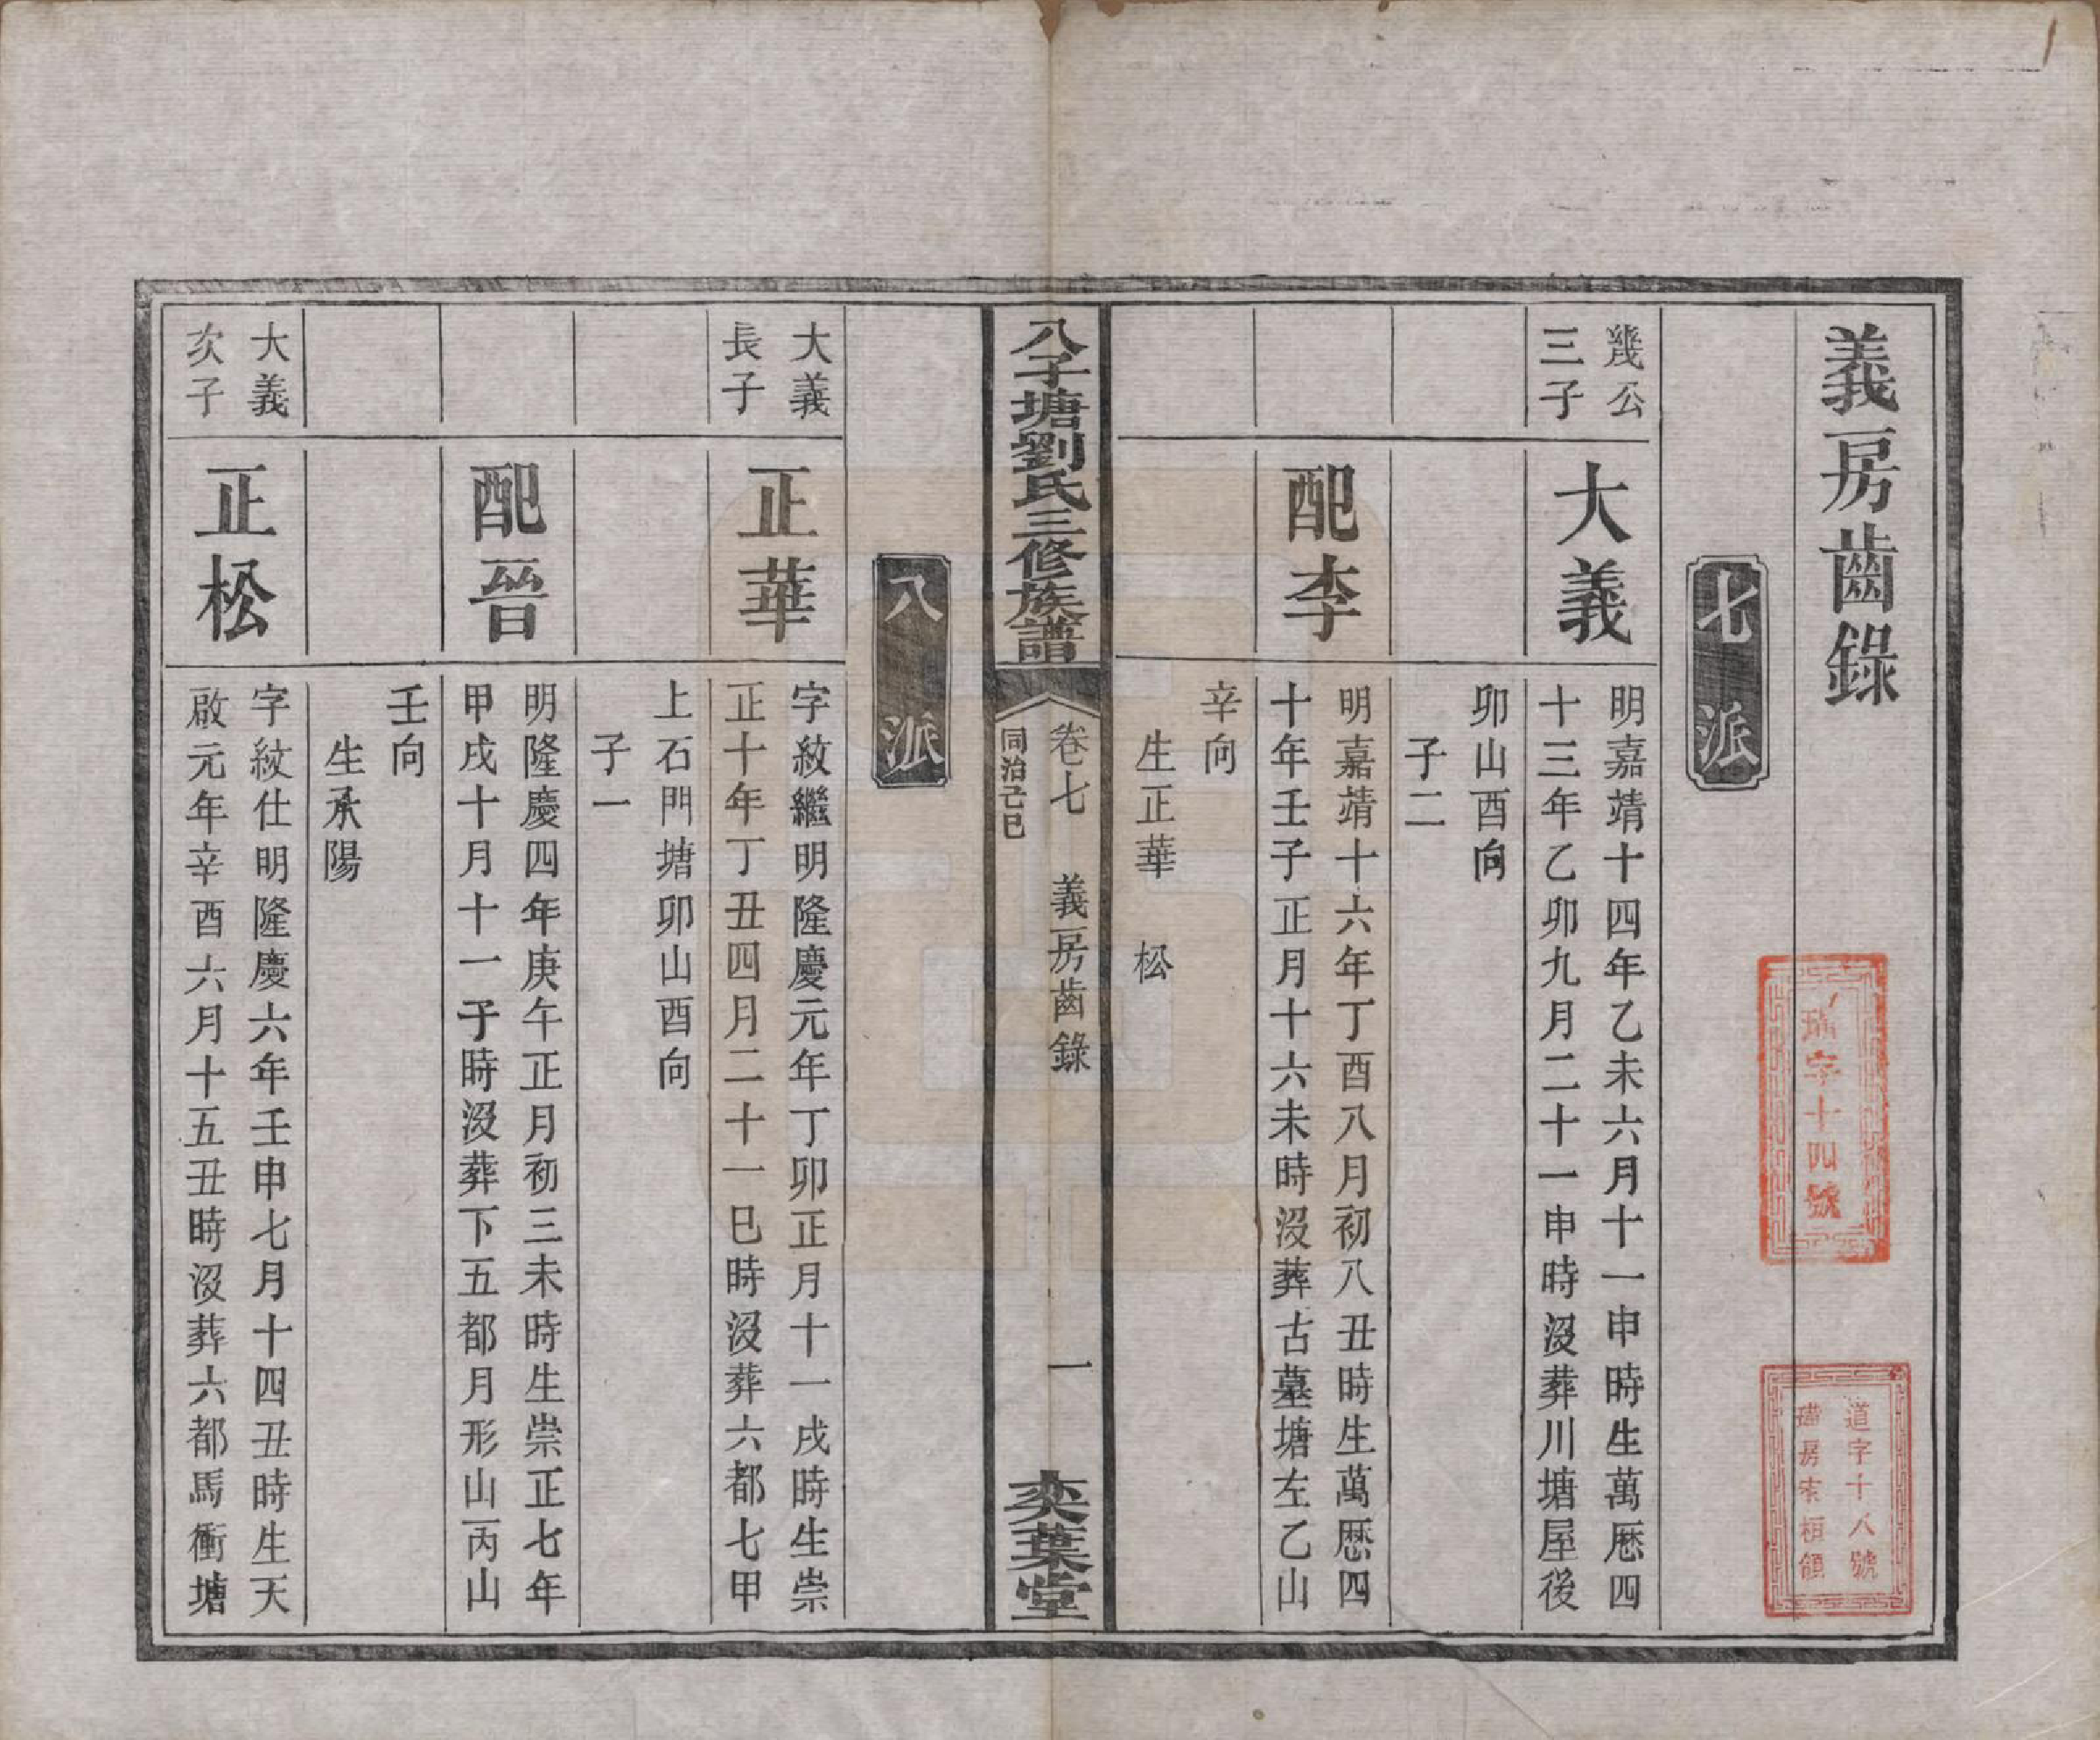 義房齒錄
七派
幾公
三子
大義
明嘉靖十四年乙未六月十一申時生萬厯四
十三年乙卯九月二十一申時沒葬川塘屋後
卯山酉向
子二
配李
明嘉靖十六年丁酉八月初八丑時生萬厯四
十年壬子正月十六未時沒葬古墓塘左乙山
辛向
生正華 松
八子塘劉氏三修族譜
卷七 義房齒錄 一
同治己巳
奕葉堂
八派
大義
長子
正華
字紋繼明隆慶元年丁卯正月十一戌時生崇
正十年丁丑四月二十一巳時沒葬六都七甲
上石門塘卯山酉向
子一
配晉
明隆慶四年庚午正月初三未時生崇正七年
甲戌十月十一子時沒葬下五都月形山丙山
壬向
生承陽
大義
次子
正松
字紋仕明隆慶六年壬申七月十四丑時生天
啟元年辛酉六月十五丑時沒葬六都馬衝塘
瑞字十四號
道字十八號
房 領